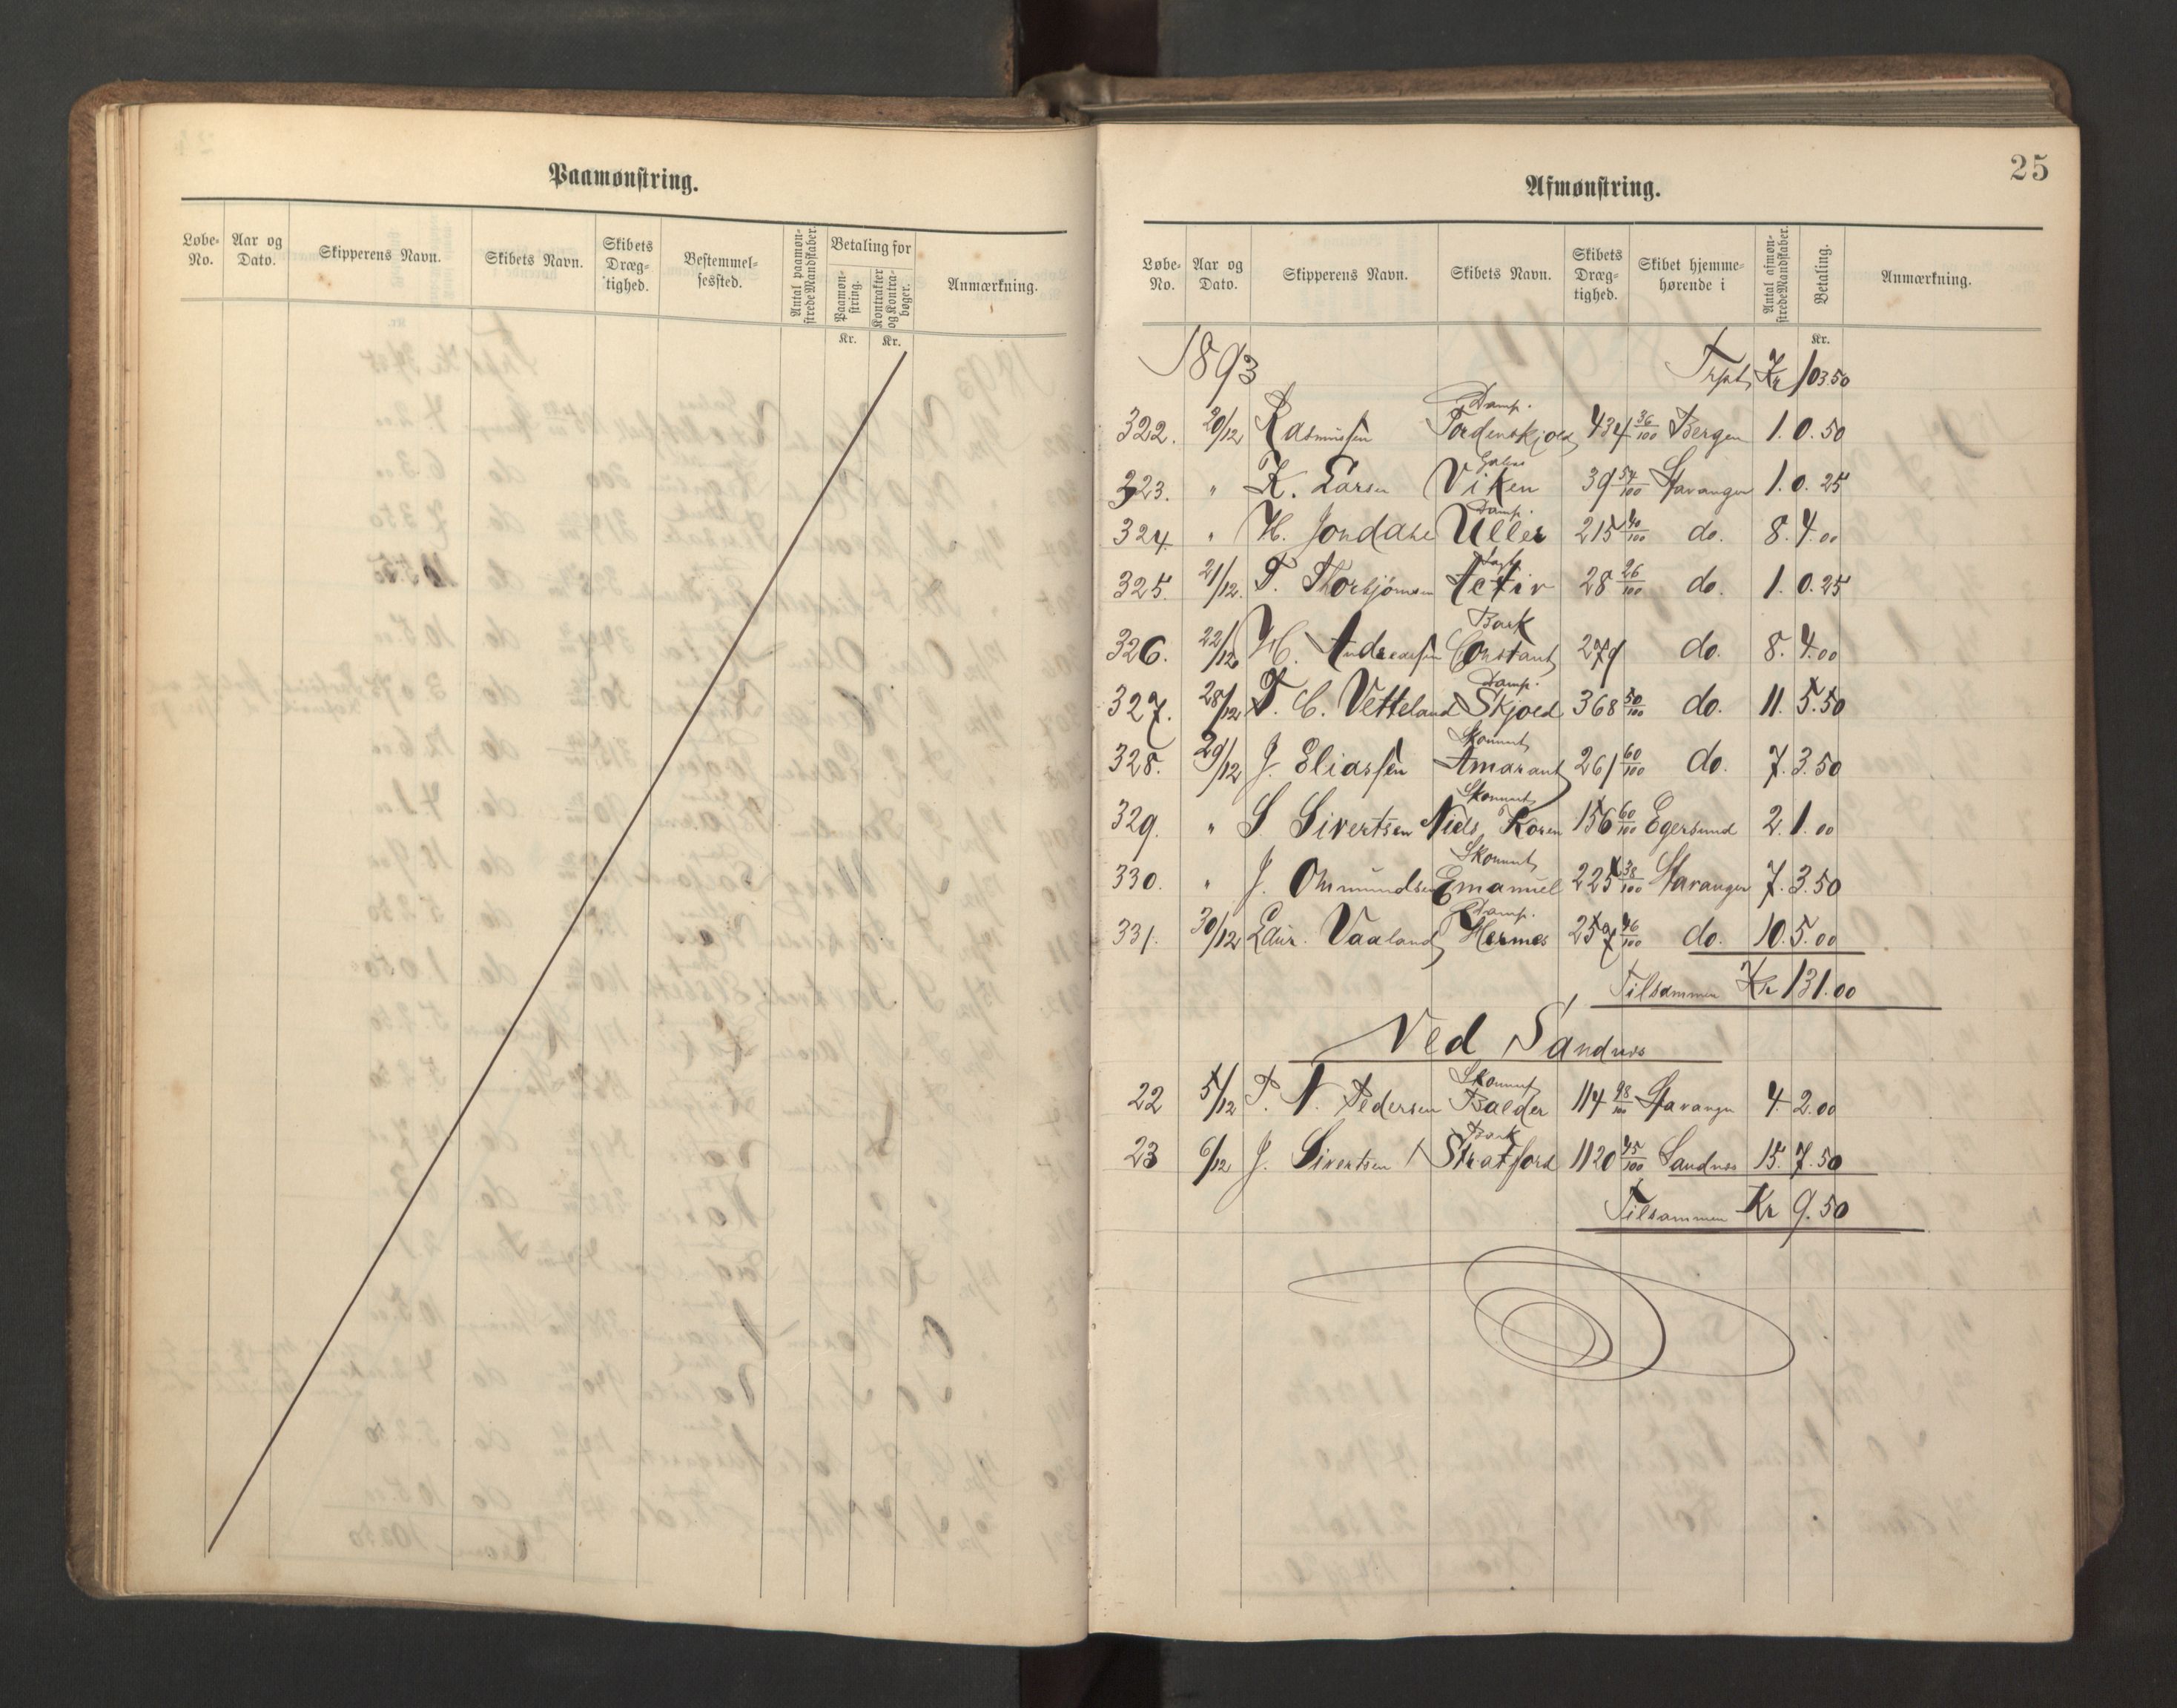 Paamønstring.
Løbe-No. Aar og Dato. Skipperens Navn. Skibets Navn. Skibets Dræg-tighed. Bestemmel-sessted. Antal paamøn-strede Mandskaber. Betaling for Paamøn-string. Kontrakter og Kontra-bøger. Anmærkning.
Kr. Kr.
25
Afmønstring.
Løbe-No. Aar og Dato. Skipperens Navn. Skibets Navn. Skibets Dræg-tighed. Skibet hjemme-hørende i Antal afmøn-strede Mandskaber. Betaling. Anmærkning.
Kr.
1893 Trpt Kr 103 50
322. 20/12 Rasmussen Damp. Tordenskjold 434 36/100 Bergen 1. 0.50
323. " K. Larsen Viken 39 54/100 Stavanger 1. 0.25
324. " H. Jondahl Damp. Uller 215 40/100 do. 8. 4.00
325. 21/12. T. Thorbjørnsen Activ 28 26/100 do. 1. 0.25
326. 22/12 H. Andreassen Bark Constant 279 do. 8. 4.00
327. 28/12 T. C. Vetteland Damp. Skjold 368 50/100 do. 11. 5.50
328. 29/12 J. Eliassen Skonnert Amarant 261 60/100 do. 7. 3.50
329. " S. Sivertsen Skonnert Niels Koren 156 60/100 Egersund 2. 1.00
330. " J. Omundsen Skonnert Emanuel 225 38/100 Stavanger 7. 3.50
331. 30/12 Laur. Vaaland Damp. Hermes 257 46/100 do. 10. 5.00
Tilsammen Kr 131.00
Ved Sandnes
22 5/12 T. N. Pedersen Skonnert Balder 114 98/100 Stavanger 4. 2.00
23 6/12 J. Sivertsen Bark Stratford 1120 45/100 Sandnes 15. 7.50
Tilsammen Kr 9.50